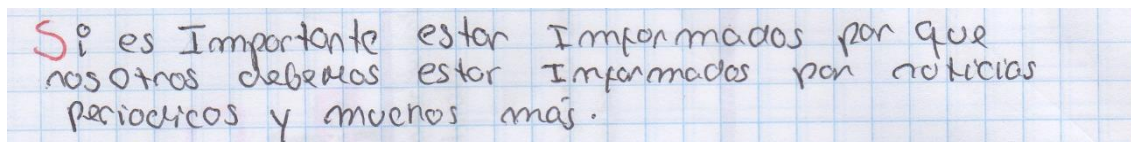 Si es Importante estar Imformados por que
nosotros debemos estar Imformados por noticias
periodicos y muchos más.